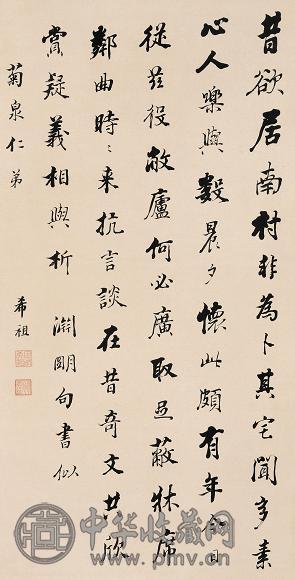 昔欲居南村非為卜其宅聞多素
心人樂與數晨夕懷此頗有年今日
從茲役敝廬何必廣取足蔽牀席
鄰曲時〻来抗言談在昔奇文共欣
賞疑義相與析 淵明句書似
菊泉仁弟
希祖
中华收藏网
www.pmcv.cn